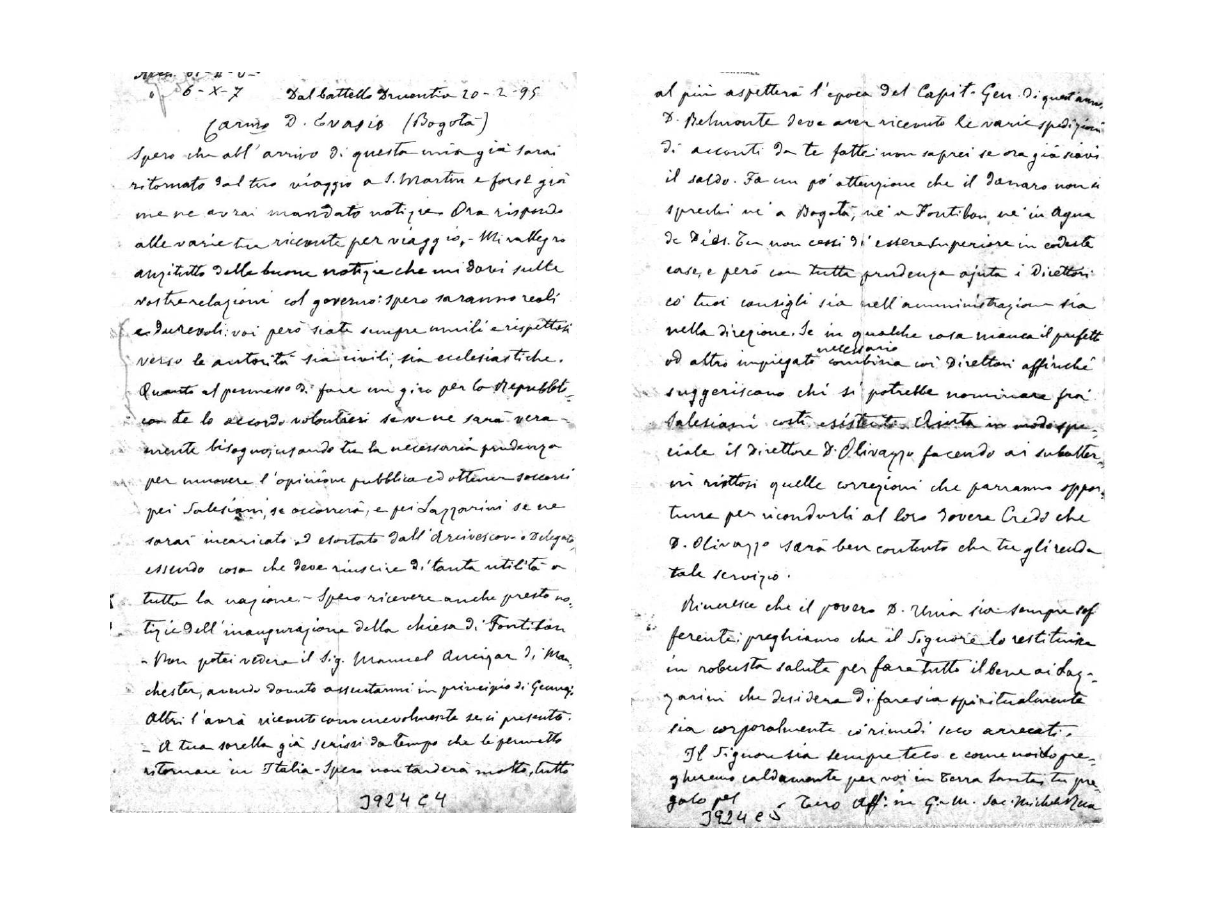 6-X-7 Dal battello Druentia 20-2-95
Carmo D. Evasio (Bogotà)
Spero che all'arrivo di questa mia già sarai
ritornato dal tuo viaggio a S. Martin e forse già
me ne avrai mandato notizie. Ora rispondo
alle varie tue ricevute per viaggio. - Mi rallegro
anzitutto delle buone notizie che mi davi sulle
vostre relazioni col governo: spero saranno reali
e durevoli: voi però siate sempre umili e rispettosi
verso le autorità sia civili, sia ecclesiastiche.
Quanto al permesso di fare un giro per la Repubbli-
ca te lo accordo volontieri se ve ne sarà vera-
mente bisogno, usando tu la necessaria prudenza
per muovere l'opinione pubblica ed ottener soccorsi
pei Salesiani, se occorrerà, e pei Lazzarini se ne
sarai incaricato od esortato dall'Arcivescovo o Delegato
essendo cosa che deve riuscire di tanta utilità a
tutta la nazione. - Spero ricevere anche presto no-
tizie dell'inaugurazione della chiesa di Fontibon
- Non potei vedere il Sig. Manuel Ancizar di Man-
chester, avendo dovuto assentarmi in principio di Genn.
Altri l'avrà ricevuto convenevolmente se si presentò.
- A tua sorella già scrissi da tempo che le permetto
ritornare in Italia - Spero non tarderà molto, tutto
3924 C 4
al più aspetterà l'epoca del Capit. Gen. di quest'anno.
D. Belmonte deve aver ricevuto le varie spedizioni
di acconti da te fatte: non saprei se ora già scavi
il saldo. Fa un po' attenzione che il danaro non si
sprechi nè a Bogotà, nè a Fontibon, nè in Agua
de Dios. Tu non cessi di essere superiore in codeste
case, e però con tutta prudenza ajuta i Direttori
co' tuoi consigli sia nell'amministrazione sia
nella direzione. Se in qualche casa manca il prefetto
od altro impiegato necessario combina coi Direttori affinchè
suggeriscano chi si potrebbe nominare fra i
Salesiani costì esistenti. Aiuta in modo spe-
ciale il direttore D. Olivazzo facendo ai subalter-
ni riottosi quelle correzioni che parranno oppor-
tune per ricondurli al loro dovere Credo che
D. Olivazzo sarà ben contento che tu gli renda
tale servizio.
Rincresce che il povero D. Unia sia sempre sof
ferente: preghiamo che il Signore lo restituisca
in robusta salute per fare tutto il bene ai Laz-
zarini che desidera di fare sia spiritualmente
sia corporalmente co' rimedi seco arrecati.
Il Signore sia sempre teco e come noi do pre-
gheremo caldamente per voi in Terra Santa, tu pre
galo pel Tuo Aff. in G. e M. Sac. Michele Rua
3924 C 5